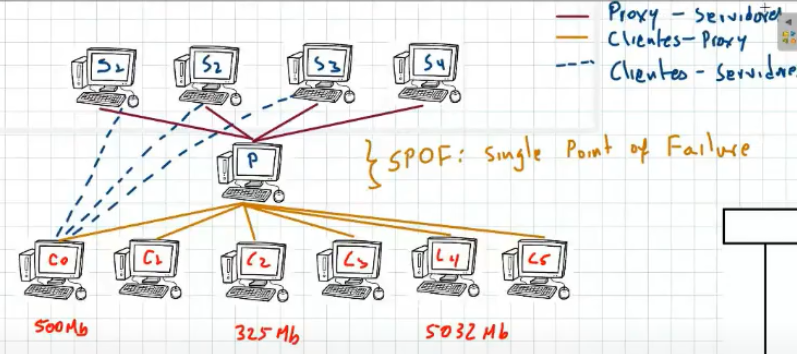 Proxy - Servidores
Clientes - Proxy
Clientes - Servidores
S1 S2 S3 S4
P
} SPOF: Single Point of Failure
C0 C1 C2 C3 C4 C5
500Mb 325 Mb 5032 Mb